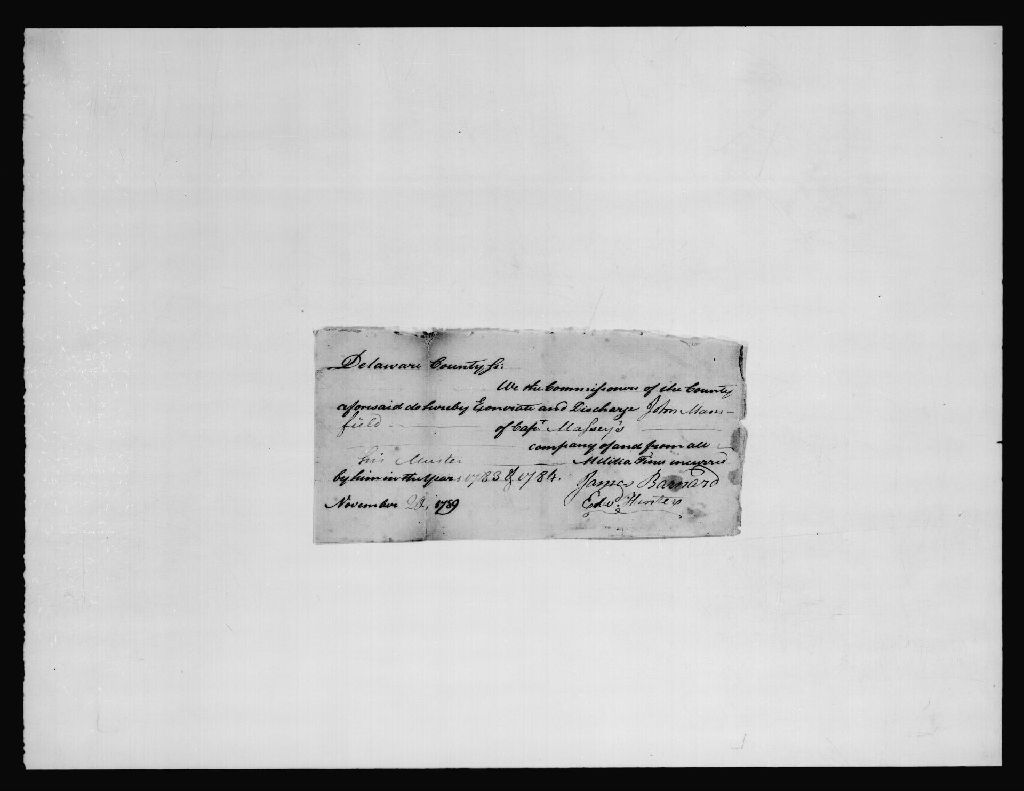 Delaware County ss:
We the Commissioners of the County
aforesaid do hereby Exonerate and Discharge John Mans-
field of Capt. Massey's
company of and from all
his Muster Militia Fines incurred
by him in the Years 1783 & 1784.
James Barnard
November 1789
Edwd. Hunter